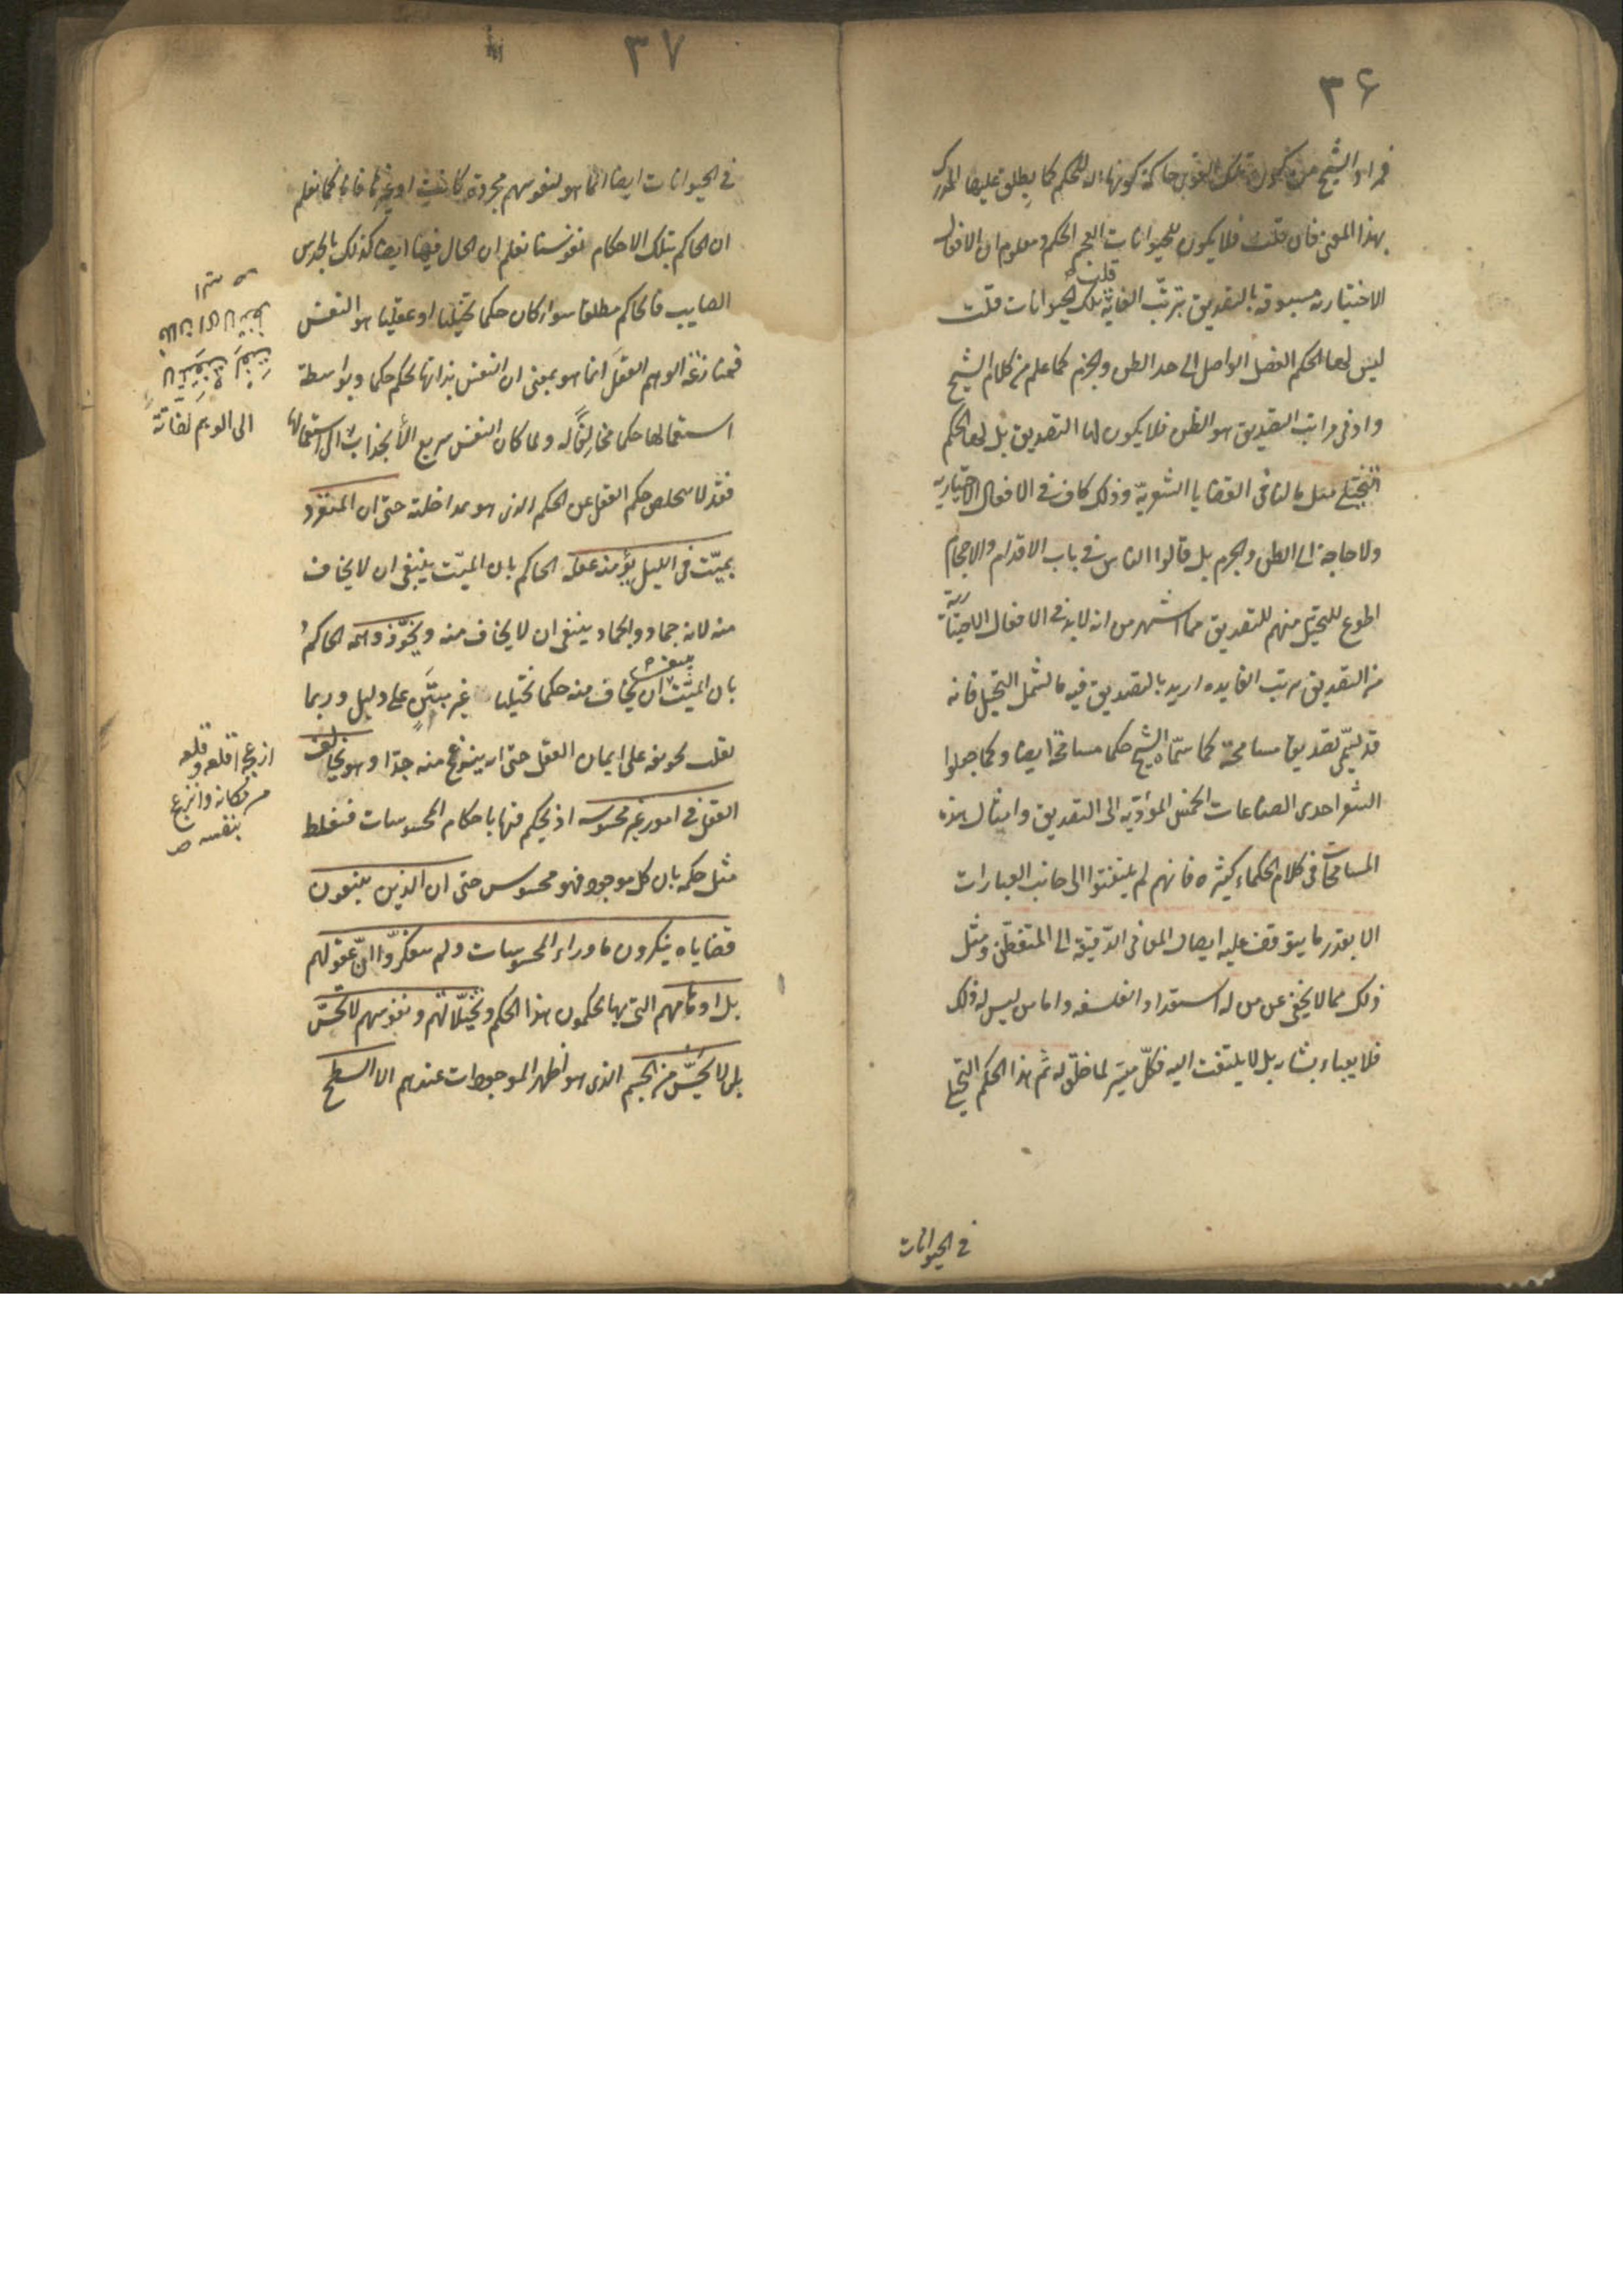 ٣۶
فمراد الشيخ من كون تلك القوى حاكمة كونها الة للحكم كما يطلق عليها المدرك
بهذا المعنى فان قلت فلا يكون للحيوانات العجم الحكم ومعلوم ان الافعال
الاختيارية مسبوقة بالتصديق بترتب الغاية لتلك الحيوانات قلت
ليس لها الحكم الفصل الواصل الى حد الظن والجزم كما علم من كلام الشيخ
وادنى مراتب التصديق هو الظن فلا يكون لها التصديق بل لها الحكم
التخيلي مثل ما لنا فى القضايا الشعرية وذلك كاف فى الافعال الاختيارية
ولا حاجة الى الظن والجزم بل قالوا الناس فى باب الاقدام والاحجام
اطوع للتخيل منهم للتصديق مما اشتهر من انه لا بد فى الافعال الاختيارية
من التصديق بترتب الفايده اريد بالتصديق فيه ما يشمل التخيل فانه
قد يسمى تصديقا مسامحة كما سمّاه الشيخ حكما مسامحة ايضا وكما جعلوا
الشعر احدى الصناعات الخمس المؤدية الى التصديق وامثال هذه
المسامحات فى كلام الحكماء كثيرة فانهم لم يلتفتوا الى جانب العبارات
الا بقدر ما يتوقف عليه ايصال المعانى الدقيقة الى المتفطّن ومثل
ذلك مما لا يخفى عن من له استعداد الفلسفه واما من ليس له ذلك
فلا يعباء بشانه بل لا يلتفت اليه فكلّ ميسّر لما خلق له ثم هذا الحكم التخيلى
فى الحيوانات
٣٧
فى الحيوانات ايضا انما هو لنفوسهم مجردة كانت او غيرها فانا كما نعلم
ان الحاكم بتلك الاحكام نفوسنا نعلم ان الحال فيها ايضا كذلك بالحدس
الصايب فالحاكم مطلقا سواء كان حكما تخيليا او عقليا هو النفس
فمنازعة الوهم العقل انما هو بمعنى ان النفس بذاتها تحكم حكما وبواسطة
استعمالها حكما مخالفا له ولما كان النفس سريع الانجذاب الى استعمالها
فقد لا يخلص حكم العقل عن الحكم الذى هو بمداخلته حتى ان المتفرد
بميّت فى الليل يؤمنه عقله الحاكم بان الميّت ينبغى ان لا يخاف
منه لانه جماد والجماد ينبغى ان لا يخاف منه ويخوّفه وهمه الحاكم
بان الميّت ينبغى ان يخاف منه حكما تخيليا غير مبتن على دليل وربما
يغلب تخويفه على ايمان العقل حتى انه ينزعج منه جدّا وهو يخالف
العقل فى امور غير محسوسه اذ يحكم فيها باحكام المحسوسات فيغلط
مثل حكمه بان كل موجود فهو محسوس حتى ان الذين يتبعون
قضاياه ينكرون ما وراء المحسوسات ولم يتفكّروا انّ عقولهم
بل اوهامهم التى بها يحكمون هذا الحكم وتخيّلاتهم ونفوسهم لا تحسّ
بل لا يحسّ من الجسم الذى هو اظهر الموجودات عندهم الا السطح
الى الوهم
ازعجه اقلعه وقلعه
من مكانه وانزعج
بنفسه ص